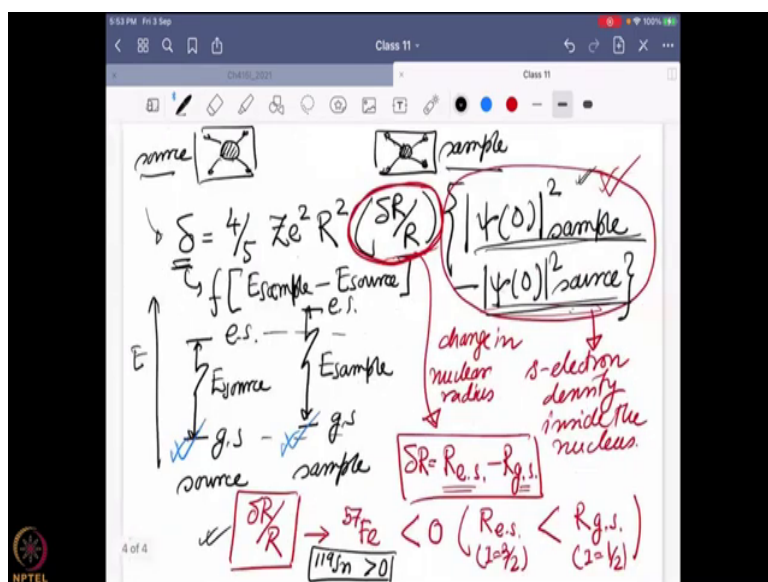 5:53 PM Fri 3 Sep
100%
Class 11
Ch416i_2021
Class 11
source
sample
δ = 4/5 Ze² R² (δR/R) { |Ψ(0)|² sample
− |Ψ(0)|² source }
f [Esample − Esource]
E
e.s.
e.s.
Esource
Esample
g.s
g.s
source
sample
change in
nuclear
radius
s-electron
density
inside the
nucleus.
δR = Re.s. − Rg.s.
δR/R → ⁵⁷Fe < 0 ( Re.s. < Rg.s. )
(I=3/2) (I=1/2)
¹¹⁹Sn > 0
4 of 4
NPTEL